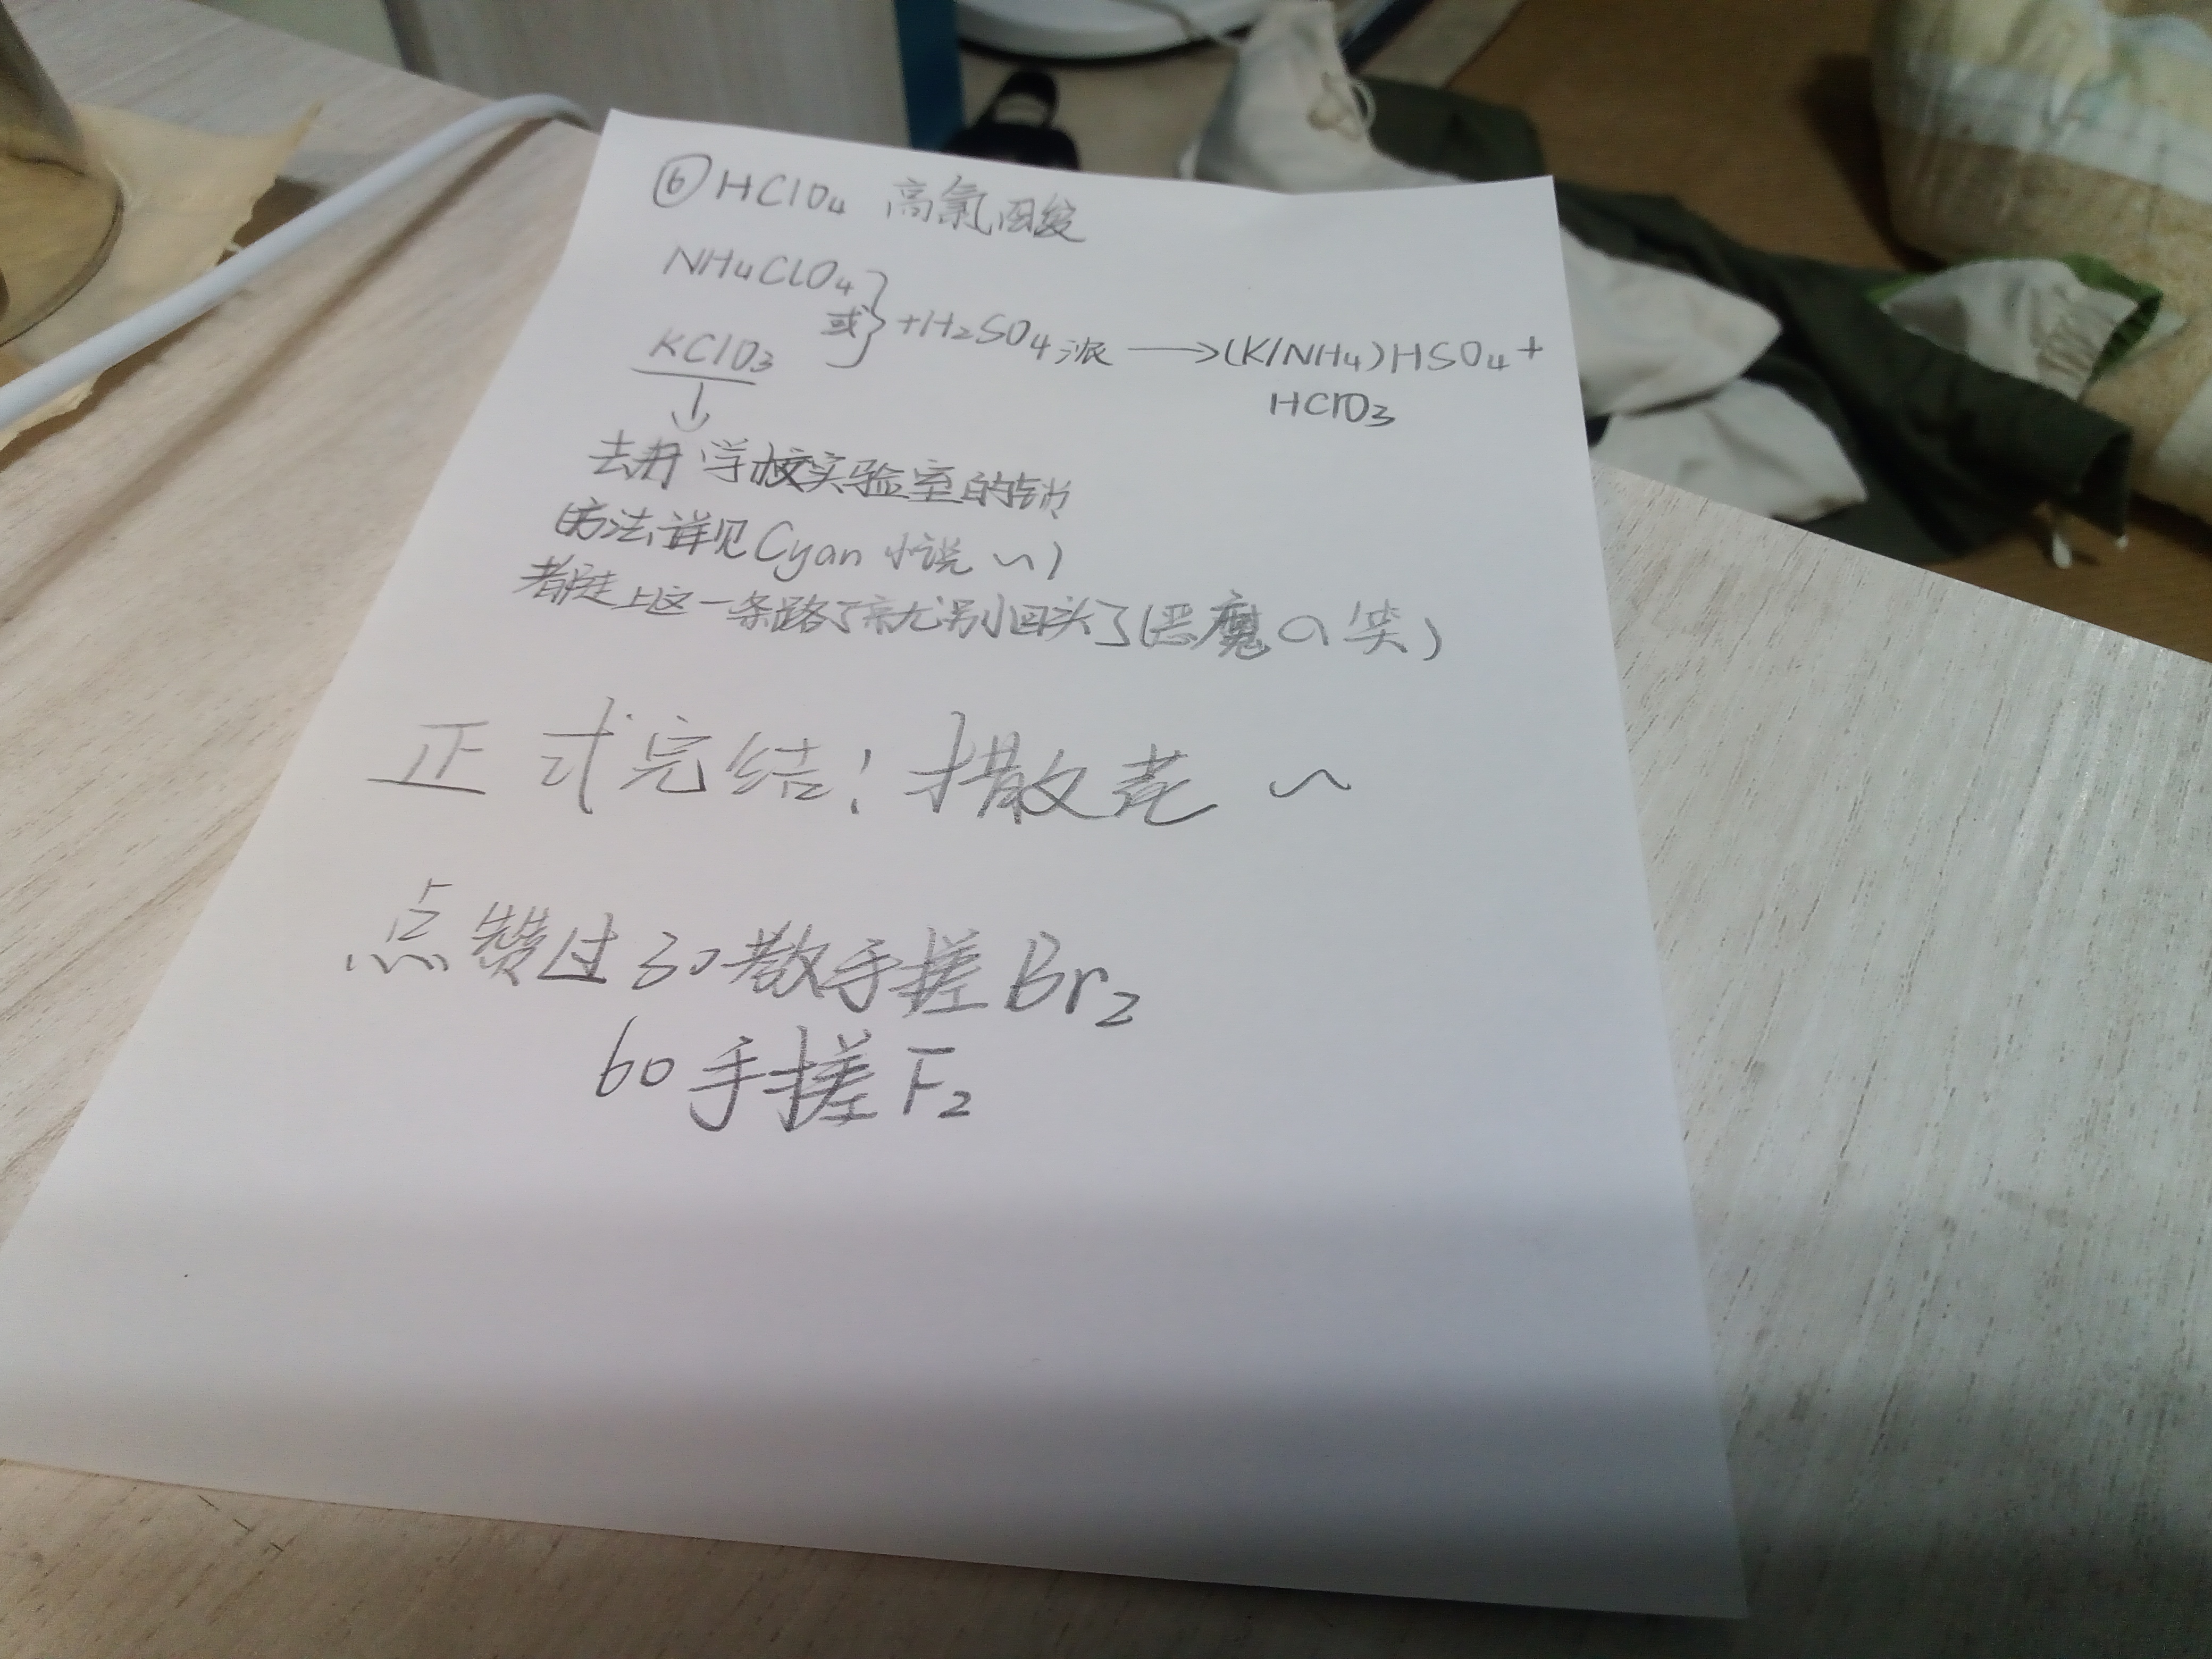 ⑥HClO₄ 高氯酸
NH₄ClO₄
或 }+H₂SO₄浓 ⟶(K/NH₄)HSO₄+
KClO₃
HClO₃
↓
去开学校实验室的锁
(方法详见Cyan小说~)
都走上这一条路了就别回头了(恶魔の笑)
正式完结!撒花~
点赞过30散手搓Br₂
60手搓F₂